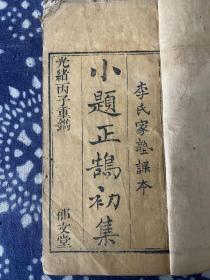 李氏家塾課本
小題正鵠初集
光緒丙子重鐫
郁文堂